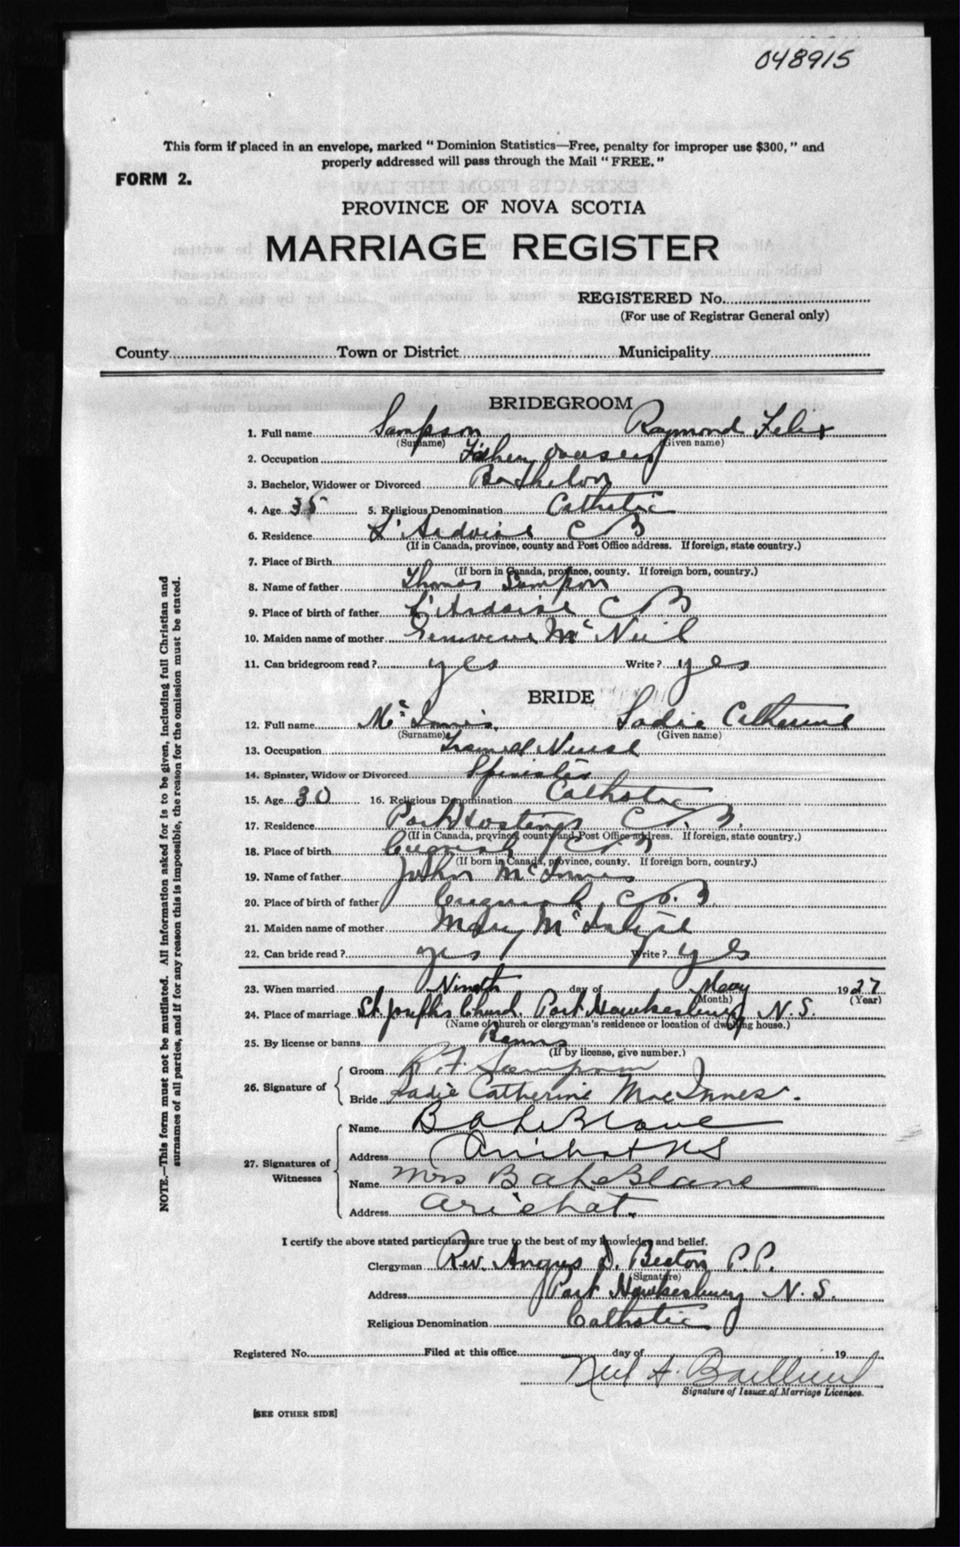 048915
This form if placed in an envelope, marked "Dominion Statistics—Free, penalty for improper use $300," and
properly addressed will pass through the Mail "FREE."
FORM 2.
PROVINCE OF NOVA SCOTIA
MARRIAGE REGISTER
REGISTERED No.
(For use of Registrar General only)
County Town or District Municipality
BRIDEGROOM
1. Full name Sampson Raymond Felix
(Surname) (Given name)
2. Occupation Fishery
3. Bachelor, Widower or Divorced Bachelor
4. Age 35 5. Religious Denomination Catholic
6. Residence L'Ardoise C B
(If in Canada, province, county and Post Office address. If foreign, state country.)
7. Place of Birth
(If born in Canada, province, county. If foreign born, country.)
8. Name of father Thomas Sampson
9. Place of birth of father L'Ardoise C B
10. Maiden name of mother Genevieve McNeil
11. Can bridegroom read? yes Write? yes
BRIDE
12. Full name McInnis Sadie Catherine
(Surname) (Given name)
13. Occupation Trained Nurse
14. Spinster, Widow or Divorced Spinster
15. Age 30 16. Religious Denomination Catholic
17. Residence Port Hastings C. B.
(If in Canada, province, county and Post Office address. If foreign, state country.)
18. Place of birth Creignish C B
(If born in Canada, province, county. If foreign born, country.)
19. Name of father John McInnis
20. Place of birth of father Creignish C. B.
21. Maiden name of mother Mary
22. Can bride read? yes Write? yes
23. When married Ninth day of May 1927
(Month) (Year)
24. Place of marriage St. Joseph's Church Port Hawkesbury N. S.
(Name of church or clergyman's residence or location of dwelling house.)
25. By license or banns Banns
(If by license, give number.)
26. Signature of
Groom R. F. Sampson
Bride Sadie Catherine MacInnes.
27. Signatures of Witnesses
Name B A LeBlanc
Address Arichat N S
Name Mrs B A LeBlanc
Address Arichat.
I certify the above stated particulars are true to the best of my knowledge and belief.
Clergyman Rev. Angus D. Beaton P.P.
(Signature)
Address Port Hawkesbury N. S.
Religious Denomination Catholic
Registered No. Filed at this office day of 19
Neil A.
Signature of Issuer of Marriage Licenses.
[SEE OTHER SIDE]
NOTE.—This form must not be mutilated. All information asked for is to be given, including full Christian and
surnames of all parties, and if for any reason this is impossible, the reason for the omission must be stated.